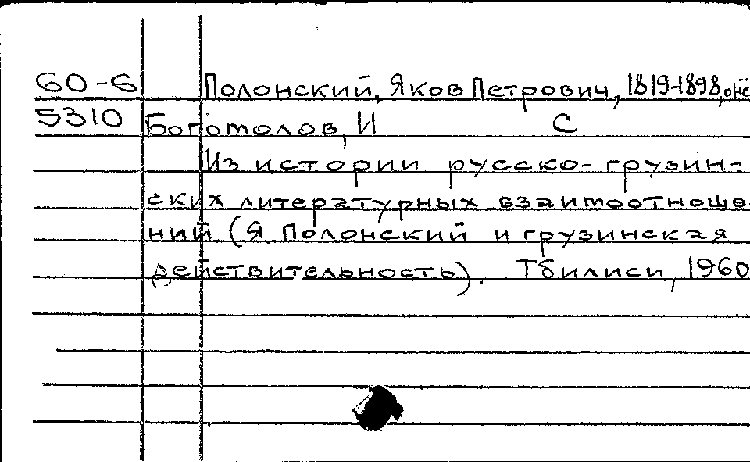 60-6 Полонский, Яков Петрович, 1819-1898, о нё
5310 Богомолов, И С
Из истории русско-грузин-
ских литературных взаимоотноше-
ний (Я Полонский и грузинская
действительность). Тбилиси, 1960